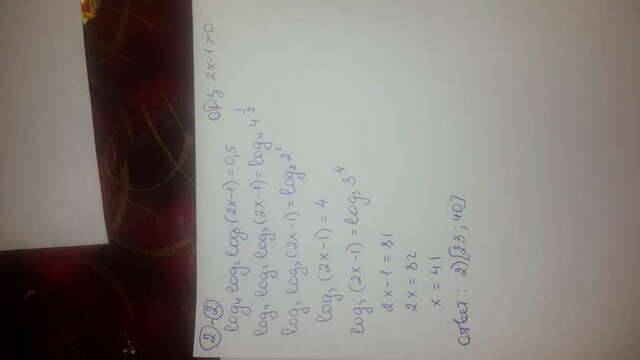 2-2
ОДЗ 2x-1>0
log₄ log₂ log₃ (2x-1) = 0,5
log₄ log₂ log₃ (2x-1) = log₄ 4^½.
log₂ log₃ (2x-1) = log₂ 2²
log₃ (2x-1) = 4
log₃ (2x-1) = log₃ 3⁴
2x-1 = 81
2x = 82
x = 41
Ответ: 2) [23; 40]